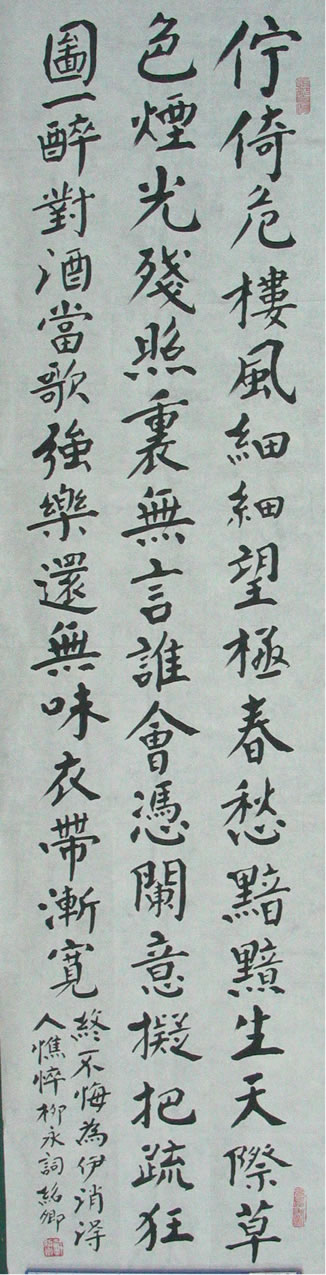 佇倚危樓風細細望極春愁黯黯生天際草
色煙光殘照裏無言誰會憑闌意擬把疏狂
圖一醉對酒當歌強樂還無味衣帶漸寬
終不悔為伊消得
人憔悴柳永詞紹卿